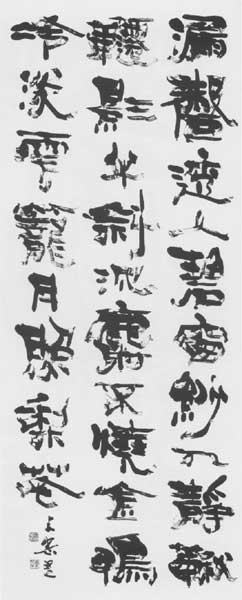 漏聲透入碧窗紗人靜鞦
韆影半斜沈麝不燒金鴨
冷淡雲籠月照梨花